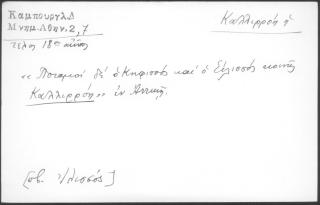 Καμπουργλ.Δ
Μνημ.Αθην.2,7
τέλος 18ου αἰῶνος
Καλλιρρόη ἡ
«Ποταμοί δέ ὁ Κηφισσός καί ὁ Εἰλισσός κοινῶς
Καλλιρρόη» ἐν Ἀττικῇ.
[πβ. Ἰλισσός]